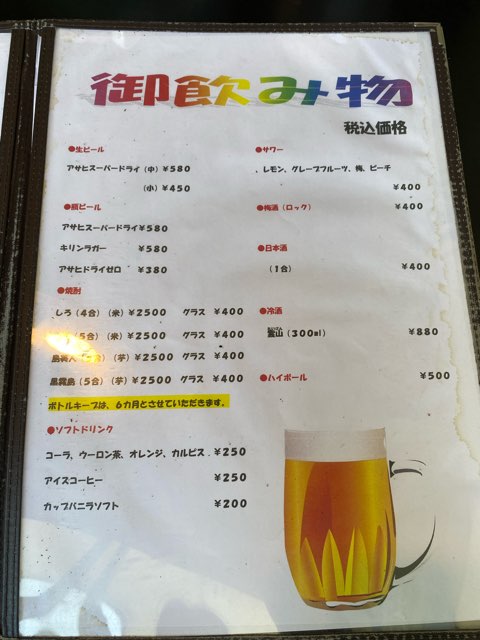 御飲み物
税込価格
●生ビール
アサヒスーパードライ（中）￥580
（小）￥450
●瓶ビール
アサヒスーパードライ￥580
キリンラガー ￥580
アサヒドライゼロ ￥380
●焼酎
しろ（4合）（米）￥2500 グラス ￥400
（5合）（米）￥2500 グラス ￥400
島美人（5合）（芋）￥2500 グラス ￥400
黒霧島（5合）（芋）￥2500 グラス ￥400
ボトルキープは、6カ月とさせていただきます。
●ソフトドリンク
コーラ、ウーロン茶、オレンジ、カルピス．￥250
アイスコーヒー ￥250
カップバニラソフト ￥200
●サワー
、レモン、グレープフルーツ、梅、ピーチ
￥400
●梅酒（ロック） ￥400
●日本酒
（1合） ￥400
●冷酒
山（300ml） ￥880
●ハイボール ￥500